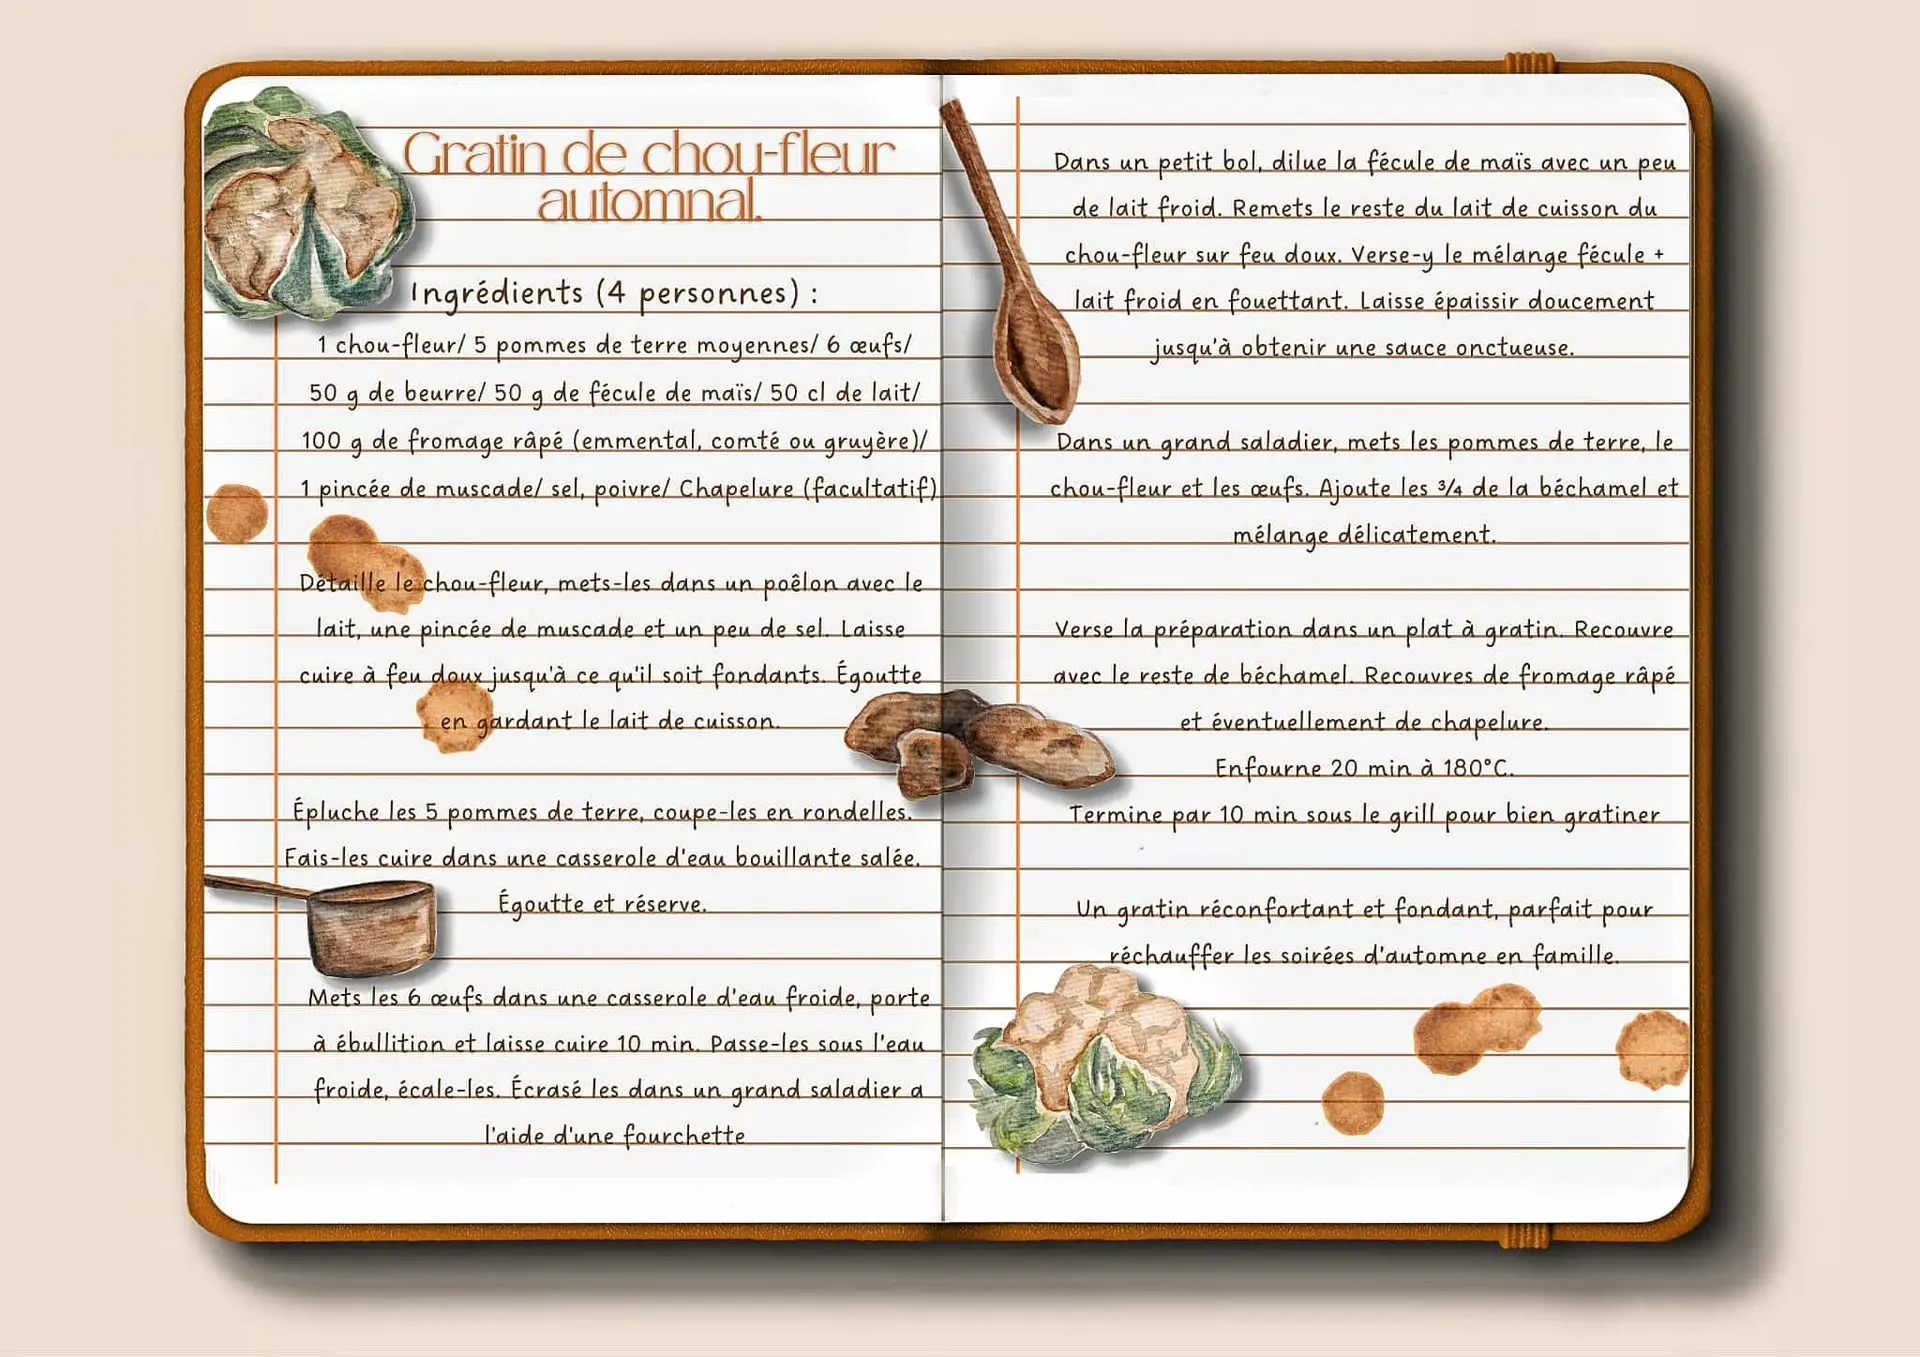 Gratin de chou-fleur
automnal.
Ingrédients (4 personnes) :
1 chou-fleur/ 5 pommes de terre moyennes/ 6 œufs/
50 g de beurre/ 50 g de fécule de maïs/ 50 cl de lait/
100 g de fromage râpé (emmental, comté ou gruyère)/
1 pincée de muscade/ sel, poivre/ Chapelure (facultatif)
Détaille le chou-fleur, mets-les dans un poêlon avec le
lait, une pincée de muscade et un peu de sel. Laisse
cuire à feu doux jusqu'à ce qu'il soit fondants. Égoutte
en gardant le lait de cuisson.
Épluche les 5 pommes de terre, coupe-les en rondelles.
Fais-les cuire dans une casserole d'eau bouillante salée.
Égoutte et réserve.
Mets les 6 œufs dans une casserole d'eau froide, porte
à ébullition et laisse cuire 10 min. Passe-les sous l'eau
froide, écale-les. Écrasé les dans un grand saladier a
l'aide d'une fourchette
Dans un petit bol, dilue la fécule de maïs avec un peu
de lait froid. Remets le reste du lait de cuisson du
chou-fleur sur feu doux. Verse-y le mélange fécule +
lait froid en fouettant. Laisse épaissir doucement
jusqu'à obtenir une sauce onctueuse.
Dans un grand saladier, mets les pommes de terre, le
chou-fleur et les œufs. Ajoute les ¾ de la béchamel et
mélange délicatement.
Verse la préparation dans un plat à gratin. Recouvre
avec le reste de béchamel. Recouvres de fromage râpé
et éventuellement de chapelure.
Enfourne 20 min à 180°C.
Termine par 10 min sous le grill pour bien gratiner
Un gratin réconfortant et fondant, parfait pour
réchauffer les soirées d'automne en famille.